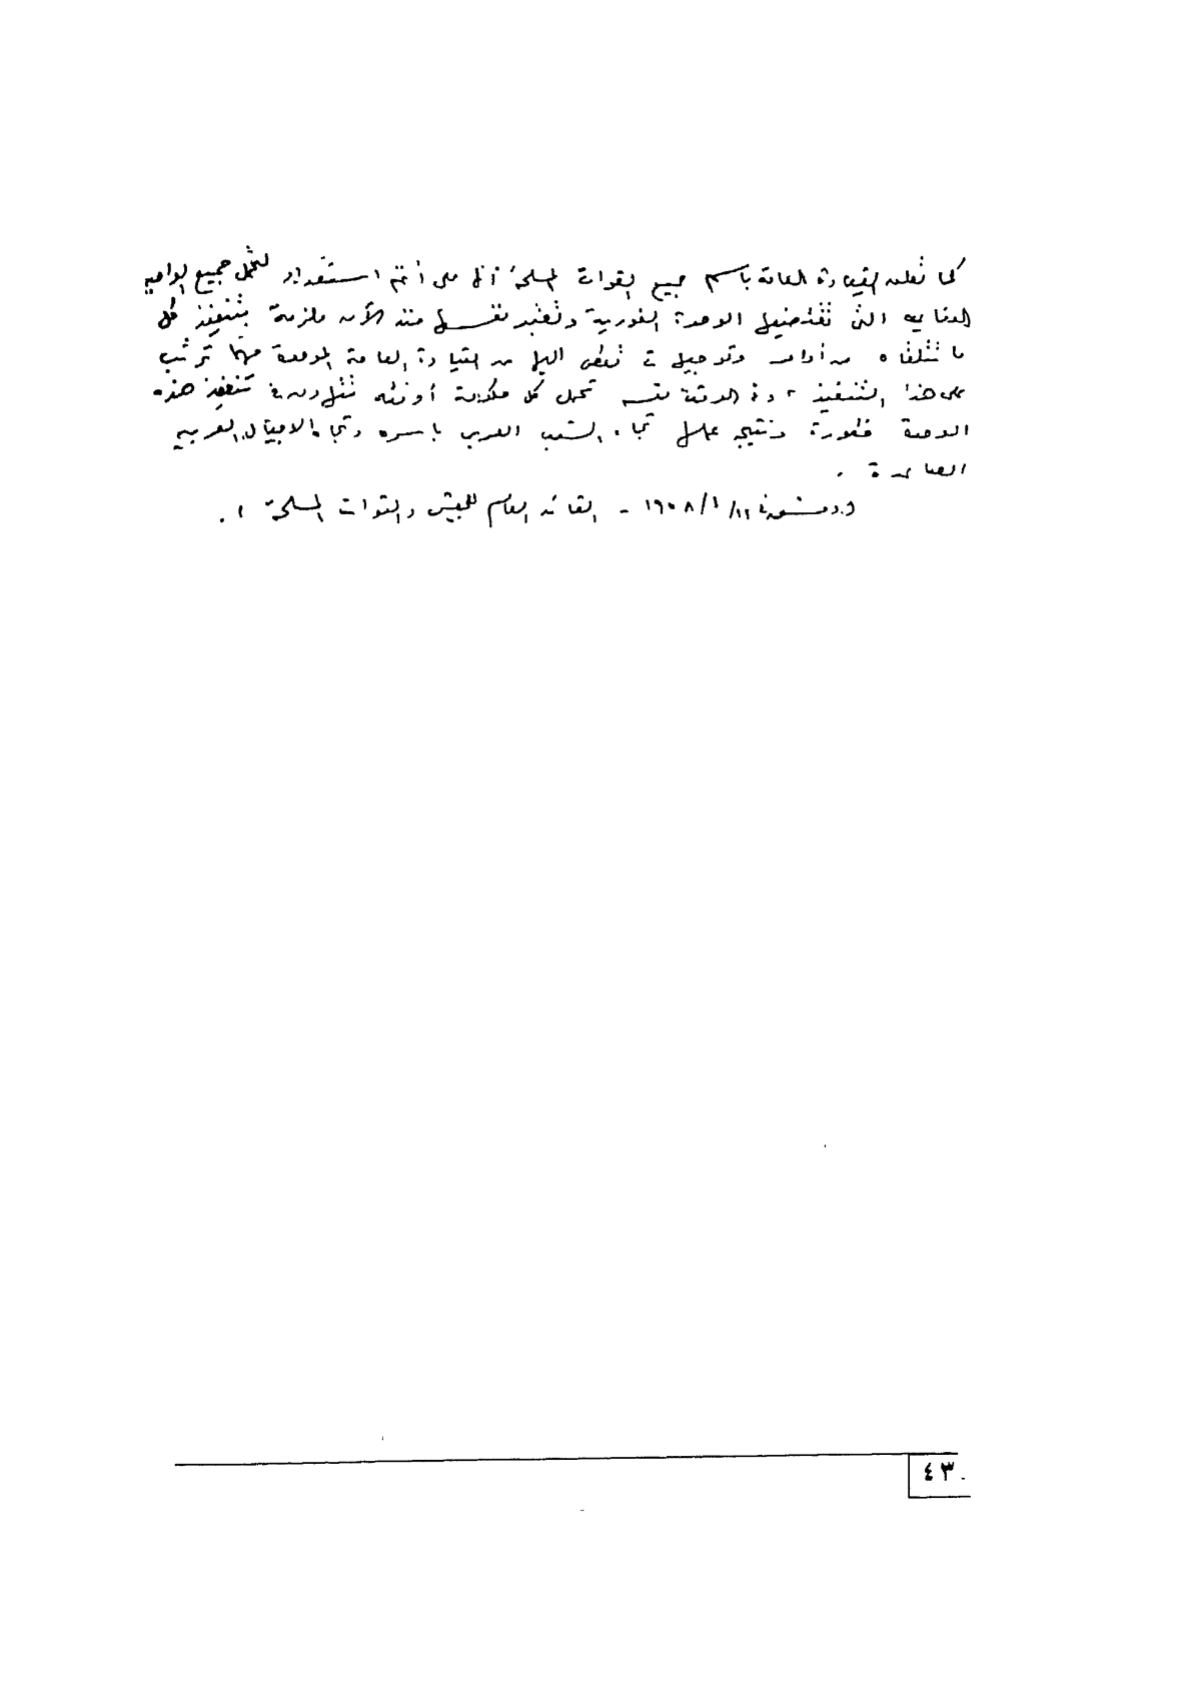 كما تعلن القيادة العامة باسم جميع القوات المسلحة أنها على أتم استعداد لتحمل جميع المواجب
الدفاعية التي تقتضيها الوحدة الفورية وتعتبر نفسها منذ الآن ملزمة بتنفيذ كل
ما تتلقاه من أوامر وتوجيهات تعطى إليها من القيادة العامة الموحدة مهما ترتب
على هذا التنفيذ، وفي الوقت نفسه تحمل كل حكومة أو فئة تتهاون في تنفيذ هذه
الوحدة خطورة ونتيجة عملها تجاه الشعب العربي بأسره وتجاه الاجيال العربية
الصاعدة .
دمشق في ١١/ ١/ ١٩٥٨ - القائد العام للجيش والقوات المسلحة ) .
٤٣٠